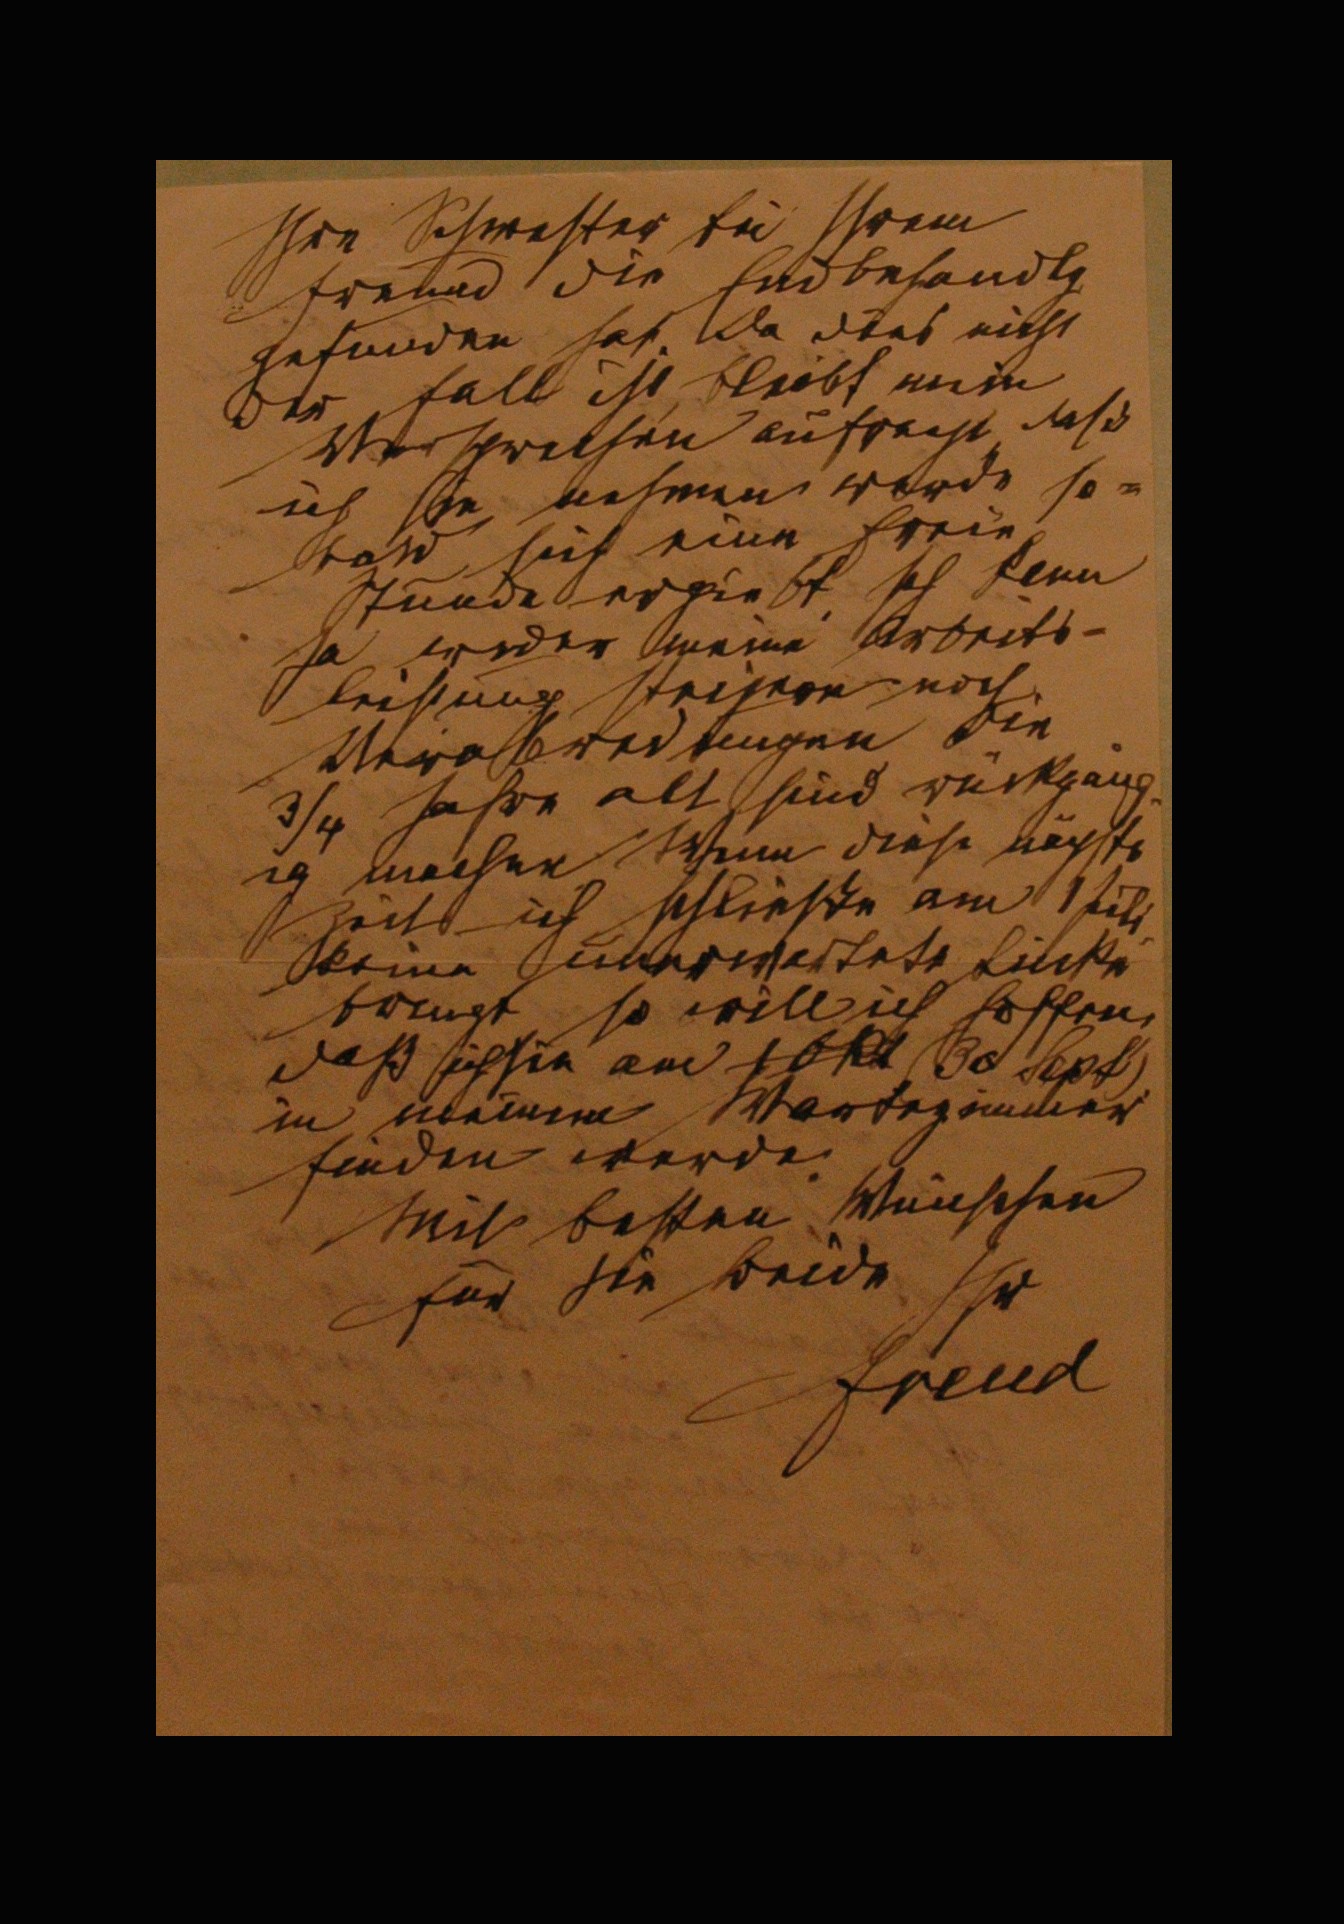 Ihre Schwester bei Ihrem
Freund die Endbehandlg
gefunden hat. Da dies nicht
der Fall ist, bleibt mein
Versprechen aufrecht, daß
ich Sie nehmen werde so=
bald sich eine freie
Stunde ergiebt. Ich kann
ja weder meine Arbeits-
leistung steigern noch
Verabredungen die
3/4 Jahre alt sind rückgäng-
ig machen. Wenn diese nächste
Zeit – ich schließe am 1 Juli
keine unerwartete Lücke
bringt so will ich hoffen,
daß ich Sie am 1 Okt (30 Sept)
in meinem Wartezimmer
finden werde.
Mit besten Wünschen
für Sie beide Ihr
Freud